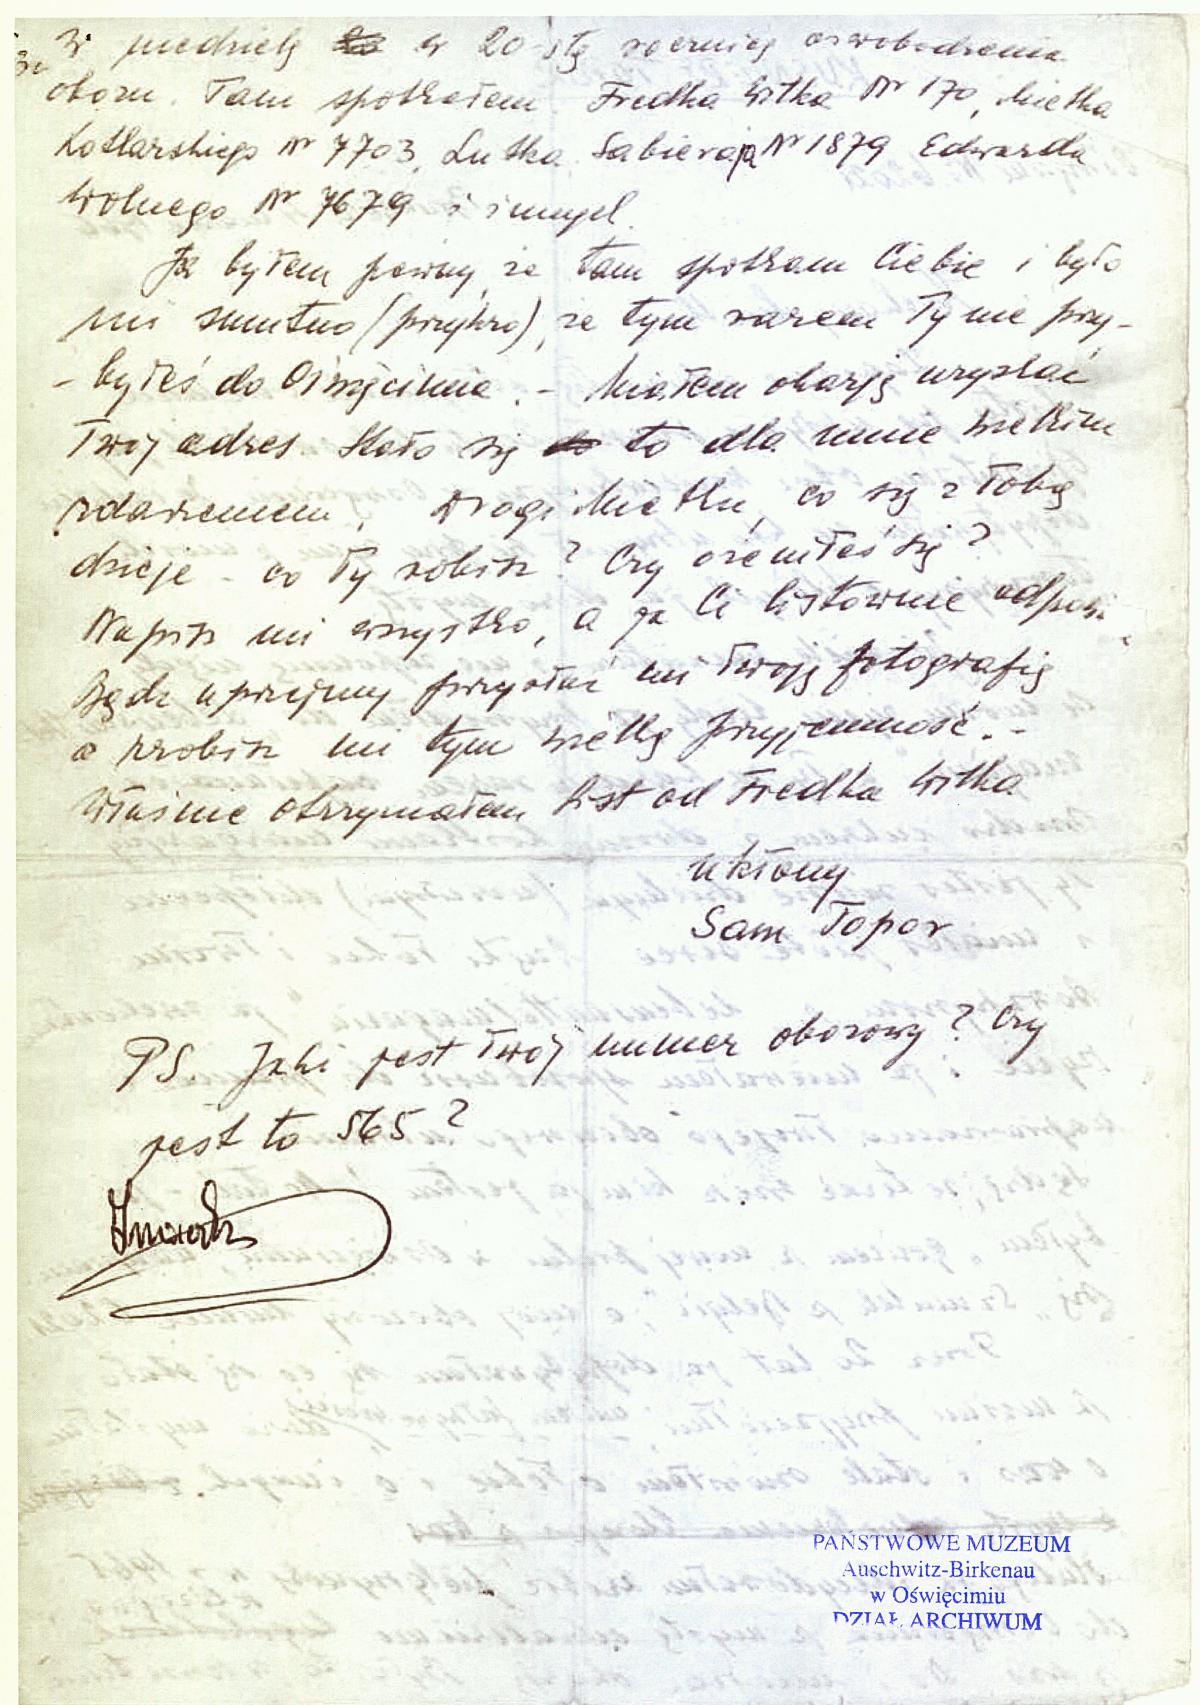 w niedzielę w 20-stą rocznicę oswobodzenia
obozu. Tam spotkałem Fredka Witka Nr 170, Mietka
Kotlarskiego Nr 7703, Lutka Nr 1879 Edwarda
Wolnego Nr 7679 i innych.
Ja byłem pewny, że tam spotkam Ciebie i było
mi smutno (przykro), że tym razem Ty nie przy-
- byłeś do Oświęcimia. - Miałem okazję uzyskać
Twój adres. Stało się to dla mnie wielkim
zdarzeniem. Drogi Mietku, co się z Tobą
dzieje - co Ty robisz? Czy ożeniłeś się?
Napisz mi wszystko, a ja Ci listownie odpowi
Bądź uprzejmy przysłać mi Twoją fotografię
a zrobisz mi tym wielką przyjemność. -
Właśnie otrzymałem list od Fredka Witka
Ukłony
Sam Topor
PS. Jaki jest Twój numer obozowy? Czy
jest to 565?
PAŃSTWOWE MUZEUM
Auschwitz-Birkenau
w Oświęcimiu
DZIAŁ ARCHIWUM